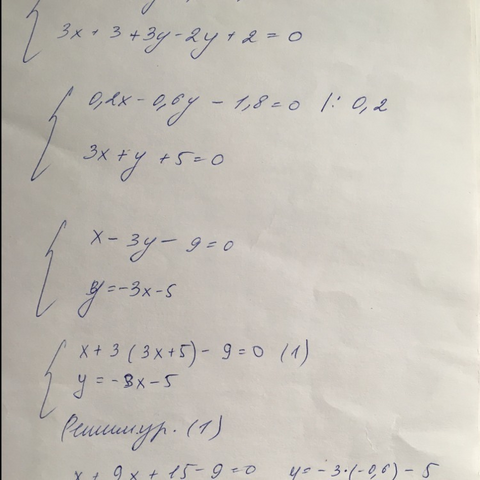 3x + 3 + 3y - 2y + 2 = 0
0,2x - 0,6y - 1,8 = 0 |: 0,2
3x + y + 5 = 0
x - 3y - 9 = 0
y = -3x - 5
x + 3(3x+5) - 9 = 0 (1)
y = -3x - 5
Решим ур. (1)
x + 9x + 15 - 9 = 0 y = -3·(-0,6) - 5